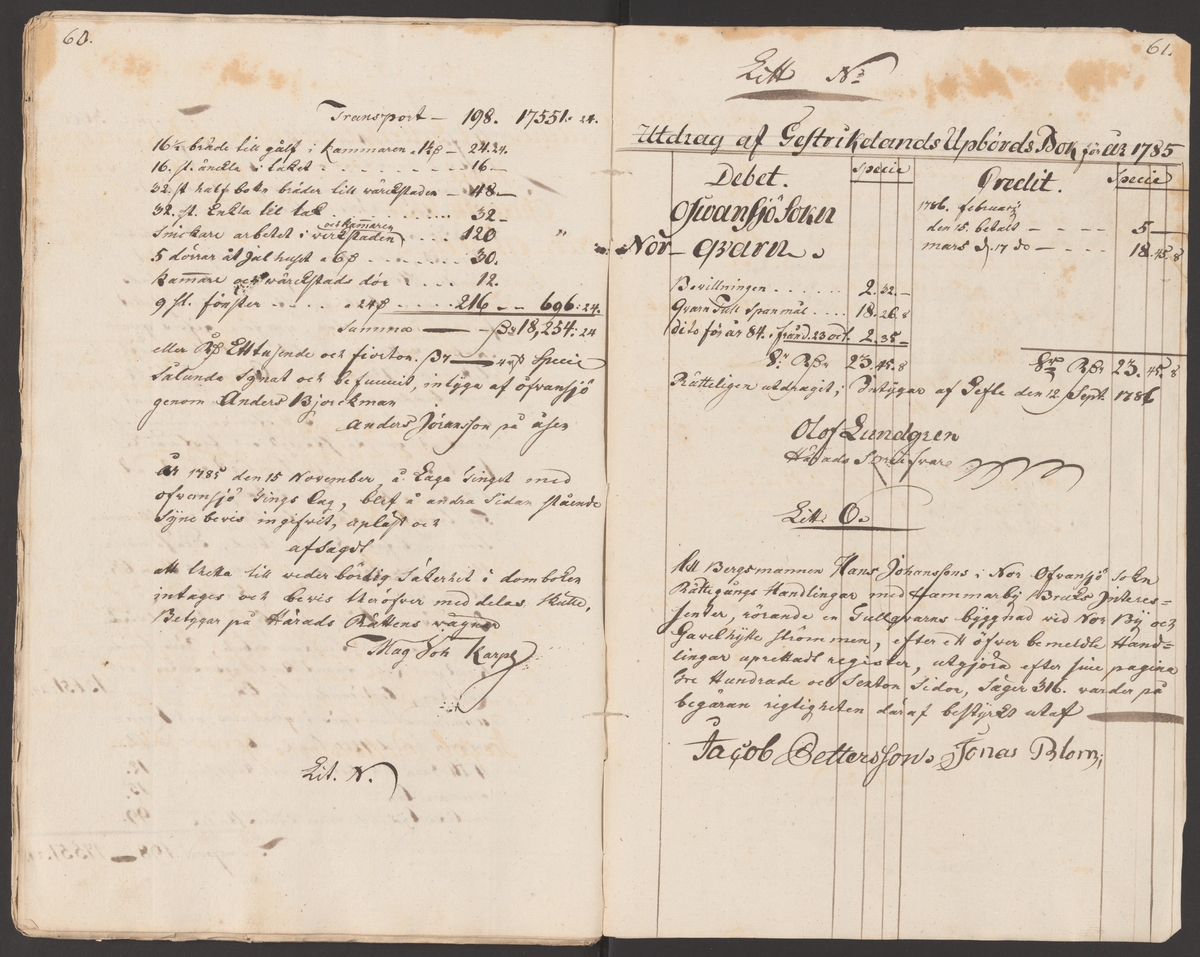 60.
Transport — 198. 17551: 24.
16 ½ bräde till gålf i kammaren . 1½ß — 24:24.
16. st. änckla i taket . . . . . . . . . 16 —
32. st half botn bräder till wärckstaden — 48 —
32. st. Enkla til tak . . . . . . . . . 32 —
och kammaren
Snickare arbetet i verckstaden . . . . 120 "
5 dörrar åt Jul huset a 6ß . . . . . . . 30.
kammare och wärckstads dör . . . . 12.
9 st. fönster . . . . . a 24ß . . . . . 216 — 696: 24.
Summa — 18,254: 24
eller Ett tusende och fiorton — Specie
Sålunda Synat och befunnit, intyga af öfvansjö
genom Anders Bjorckman
Anders Jöransson på åsen
År 1785 den 15 November, å Laga Tinget med
Ofvansjö Tings Lag, blef å andra Sidan stående
Syne bevis ingifvit, upläst och
afsagdt
att thetta till vederbörlig Säkerhet i domboken
intages och bevis theröfver meddelas Rätte,
Betygar på Härads Rättens wägnar
Mag Joh Karp
Lit. N.
61.
Litt N:
Utdrag af Gestriklands Upbörds Bok för år 1785
Debet. Specie Credit. Specie
Ofvansjö Sokn
Nor-Qvarn.
1786. februarj
den 15. betalt — — — — 5 —
mars d. 17 do — — — 18.45.8
Bevillningen . . . . . . 2.32.—
Qvarn Tull Spanmål . . . . 18.26.8
dito för år 84. från d. 23 oct. 2.35 —
S:r Rdr 23.45.8
S:r Rdr 23.45.8
Rätteligen utdragit, Intygar af Gefle den 12. Sept. 1786
Olof Lundgren
Härads Skrifvare
Litt: O.
Att Bergsmannen Hans Johanssons i Nor Ofvansjö Sokn
Rättegångs Handlingar med Hammarby Bruks Interes=
senter, rörande en Tullqvarns byggnad vid Nor By och
Gavelhytte strömmen, efter ett öfver bemeldte Hand=
lingar uprettadt register, utgjöra efter sine pagina
tre Hundrade och Sexton Sidor, säger 316. varder på
begäran rigtigheten däraf bestyrkt utaf
Jacob Pettersson, Jonas Blom;